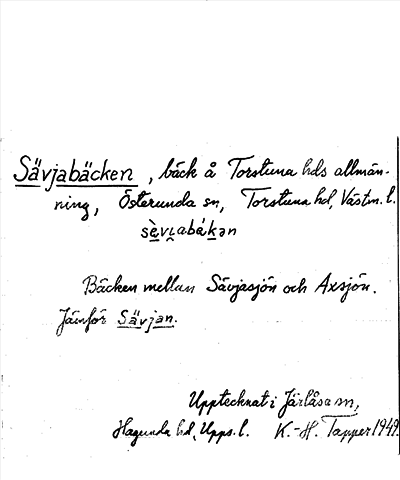 Sävjabäcken, bäck å Torstuna hds allmän-
ning, Österunda sn, Torstuna hd, Västm. l.
sè̱vi̯abák̠ən
Bäcken mellan Sävjasjön och Axsjön.
Jämför Sävjan.
Upptecknat i Järlåsa sn,
Hagunda hd, Upps. l. K.-H. Tapper 1949.